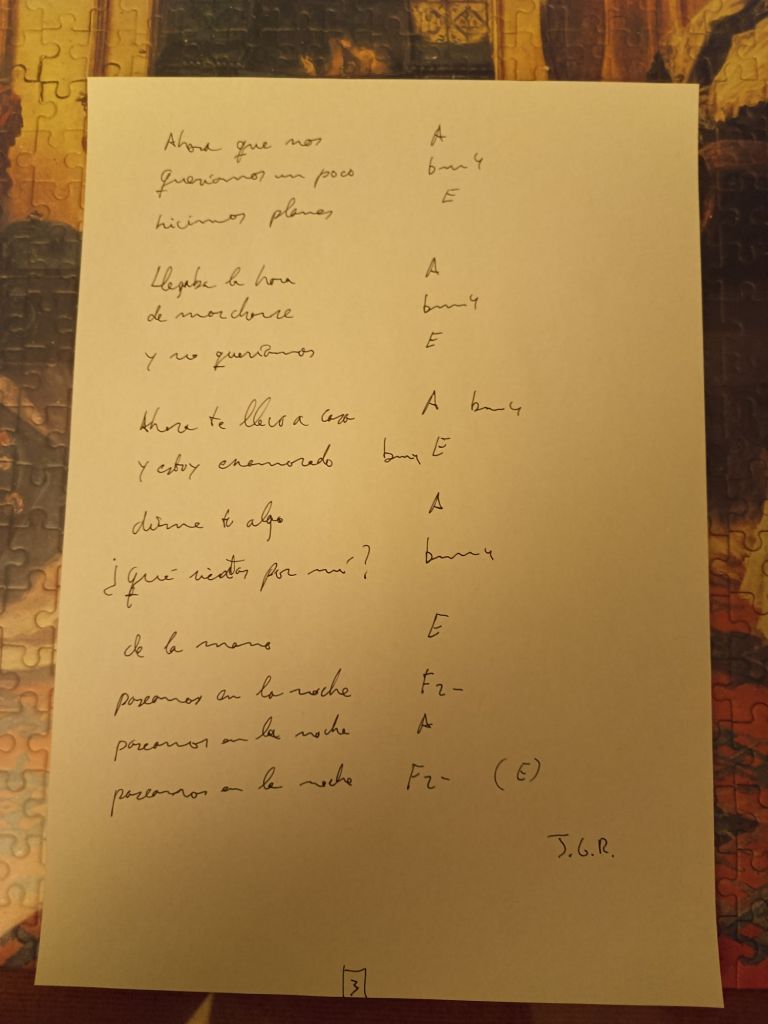 Ahora que nos A
queríamos un poco bm4
hicimos planes E
Llegaba la hora A
de marcharse bm4
y no queríamos E
Ahora te llevo a casa A bm4
y estoy enamorado bm4 E
dime tú algo A
¿qué sientes por mí? bm4
de la mano E
paseamos en la noche F2-
paseamos en la noche A
paseamos en la noche F2- (E)
J.G.R.
3